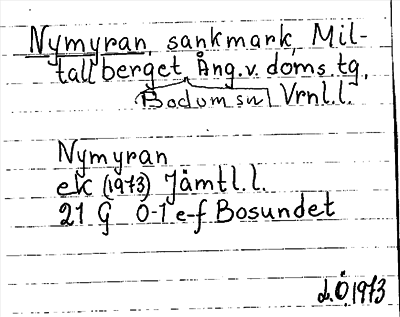 Nymyran, sankmark, Mil-
tallberget Ång.v. doms.tg.
Bodum sn Vrnl.l.
Nymyran
ek (1973) Jämtl.l.
21 G 0-1 e-f Bosundet
d.Ö.1973